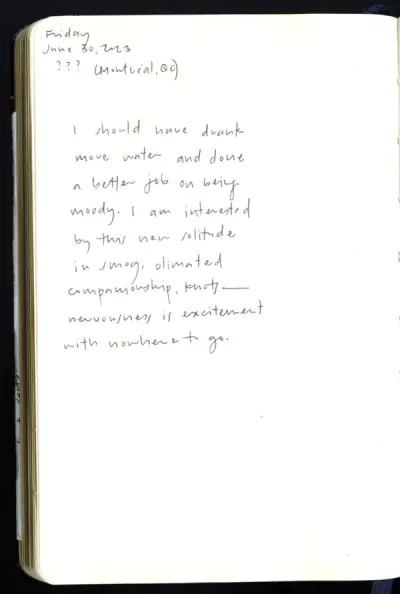 Friday
June 30, 2023
??? (Montreal, QC)
I should have drank
more water and done
a better job on being
moody. I am interested
by this new solitude
in smog, olimated
companionship, knots—
nervousness is excitement
with nowhere to go.